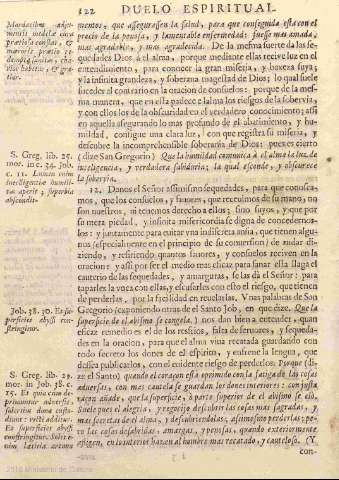 122 DUELO ESPIRITUAL.
mentos, que asseguraffen la salud, para que conseguida esta con el
precio de la penosa, y lamentable enfermedad: fuesse mas amada,
mas agradable, y mas agradecida. De la mesma suerte da las se-
quedades Dios à el alma, porque mediante ellas recive luz en el
entendimiento, para conocer la gran miseria, y baxeza suya;
y la infinita grandeza, y soberana magestad de Dios; lo qual suele
suceder al contrario en la oracion de consuelos: porque de la mes-
ma manera, que en ella padece el alma los riesgos de la sobervia,
y con ellos los de la obscuridad en el verdadero conocimiento; assi
en aquella assegurando lo mas profundo de el abatimiento, y hu-
mildad, consigue una clara luz, con que registra su miseria, y
descubre la incomprehensible soberania de Dios: pues es cierto
(dize San Gregorio) Que la humildad comunica à el alma la luz, de
inteligencia, y verdadera sabiduria; la qual esconde, y obscurece
la sobervia.
12. Danos el Señor assimismo sequedades, para que conozca-
mos, que los consuelos, y favores, que recevimos de su mano, no
son nuestros, ni tenemos derecho à ellos; sino suyos, y que por
su mera piedad, y infinita misericordia se digna de concedernos-
los: y juntamente para evitar una indiscreta ansia, que tienen algu-
nos (especialmente en el principio de su conversion) de andar di-
ziendo, y refiriendo quantos favores, y consuelos reciven en la
oracion: y assi por ser el medio mas eficaz para sanar esta llaga el
cauterio de las sequedades, y amarguras, se las dà el Señor: para
taparles la voca con ellas, y escusarles con esto el riesgo, que tienen
de perderlas, por la facilidad en revelarlas. Unas palabras de San
Gregorio (exponiendo otras de el Santo Job, en que dize, Que la
superficie de el abismo se congela) nos dan bien à entender, quan
eficaz remedio es el de los resfrios, falta de fervores, y sequeda-
des en la oracion, para que el alma viva recatada guardando con
todo secreto los dones de el espiritu, y enfrene la lengua, que
dessea publicarlos, con el evidente riesgo de perderlos. Porque (di-
ze el Santo) quando el coraçon està oprimido con la fatiga de las cosas
adversas, con mas cautela se guardan los dones interiores: con justa
razon añade, que la superficie, ò parte superior de el abismo se elò.
Suele pues el alegria, y regocijo descubrir las cosas mas sagradas, y
mas secretas de el alma, y descubriendolas; assimismo perderlas: pe-
ro las cosas desabridas, amargas, y penosas, quando exteriormente
afligen, en lo interior hazen al hombre mas recatado, y cauteloso. (Y
con-
S. Greg. lib. 25.
mor. inc. 34. Job.
c. 11. Lumen enim
intelligentiæ humili-
tas aperit, superbia
abscondit.
Job. 38. 30. Et su-
perficies abyssi con-
stringitur.
S. Greg. lib. 29.
mor. in Job. 38. c.
15. Et quia cum de-
primuntur
2010 Ministerio de Cultura